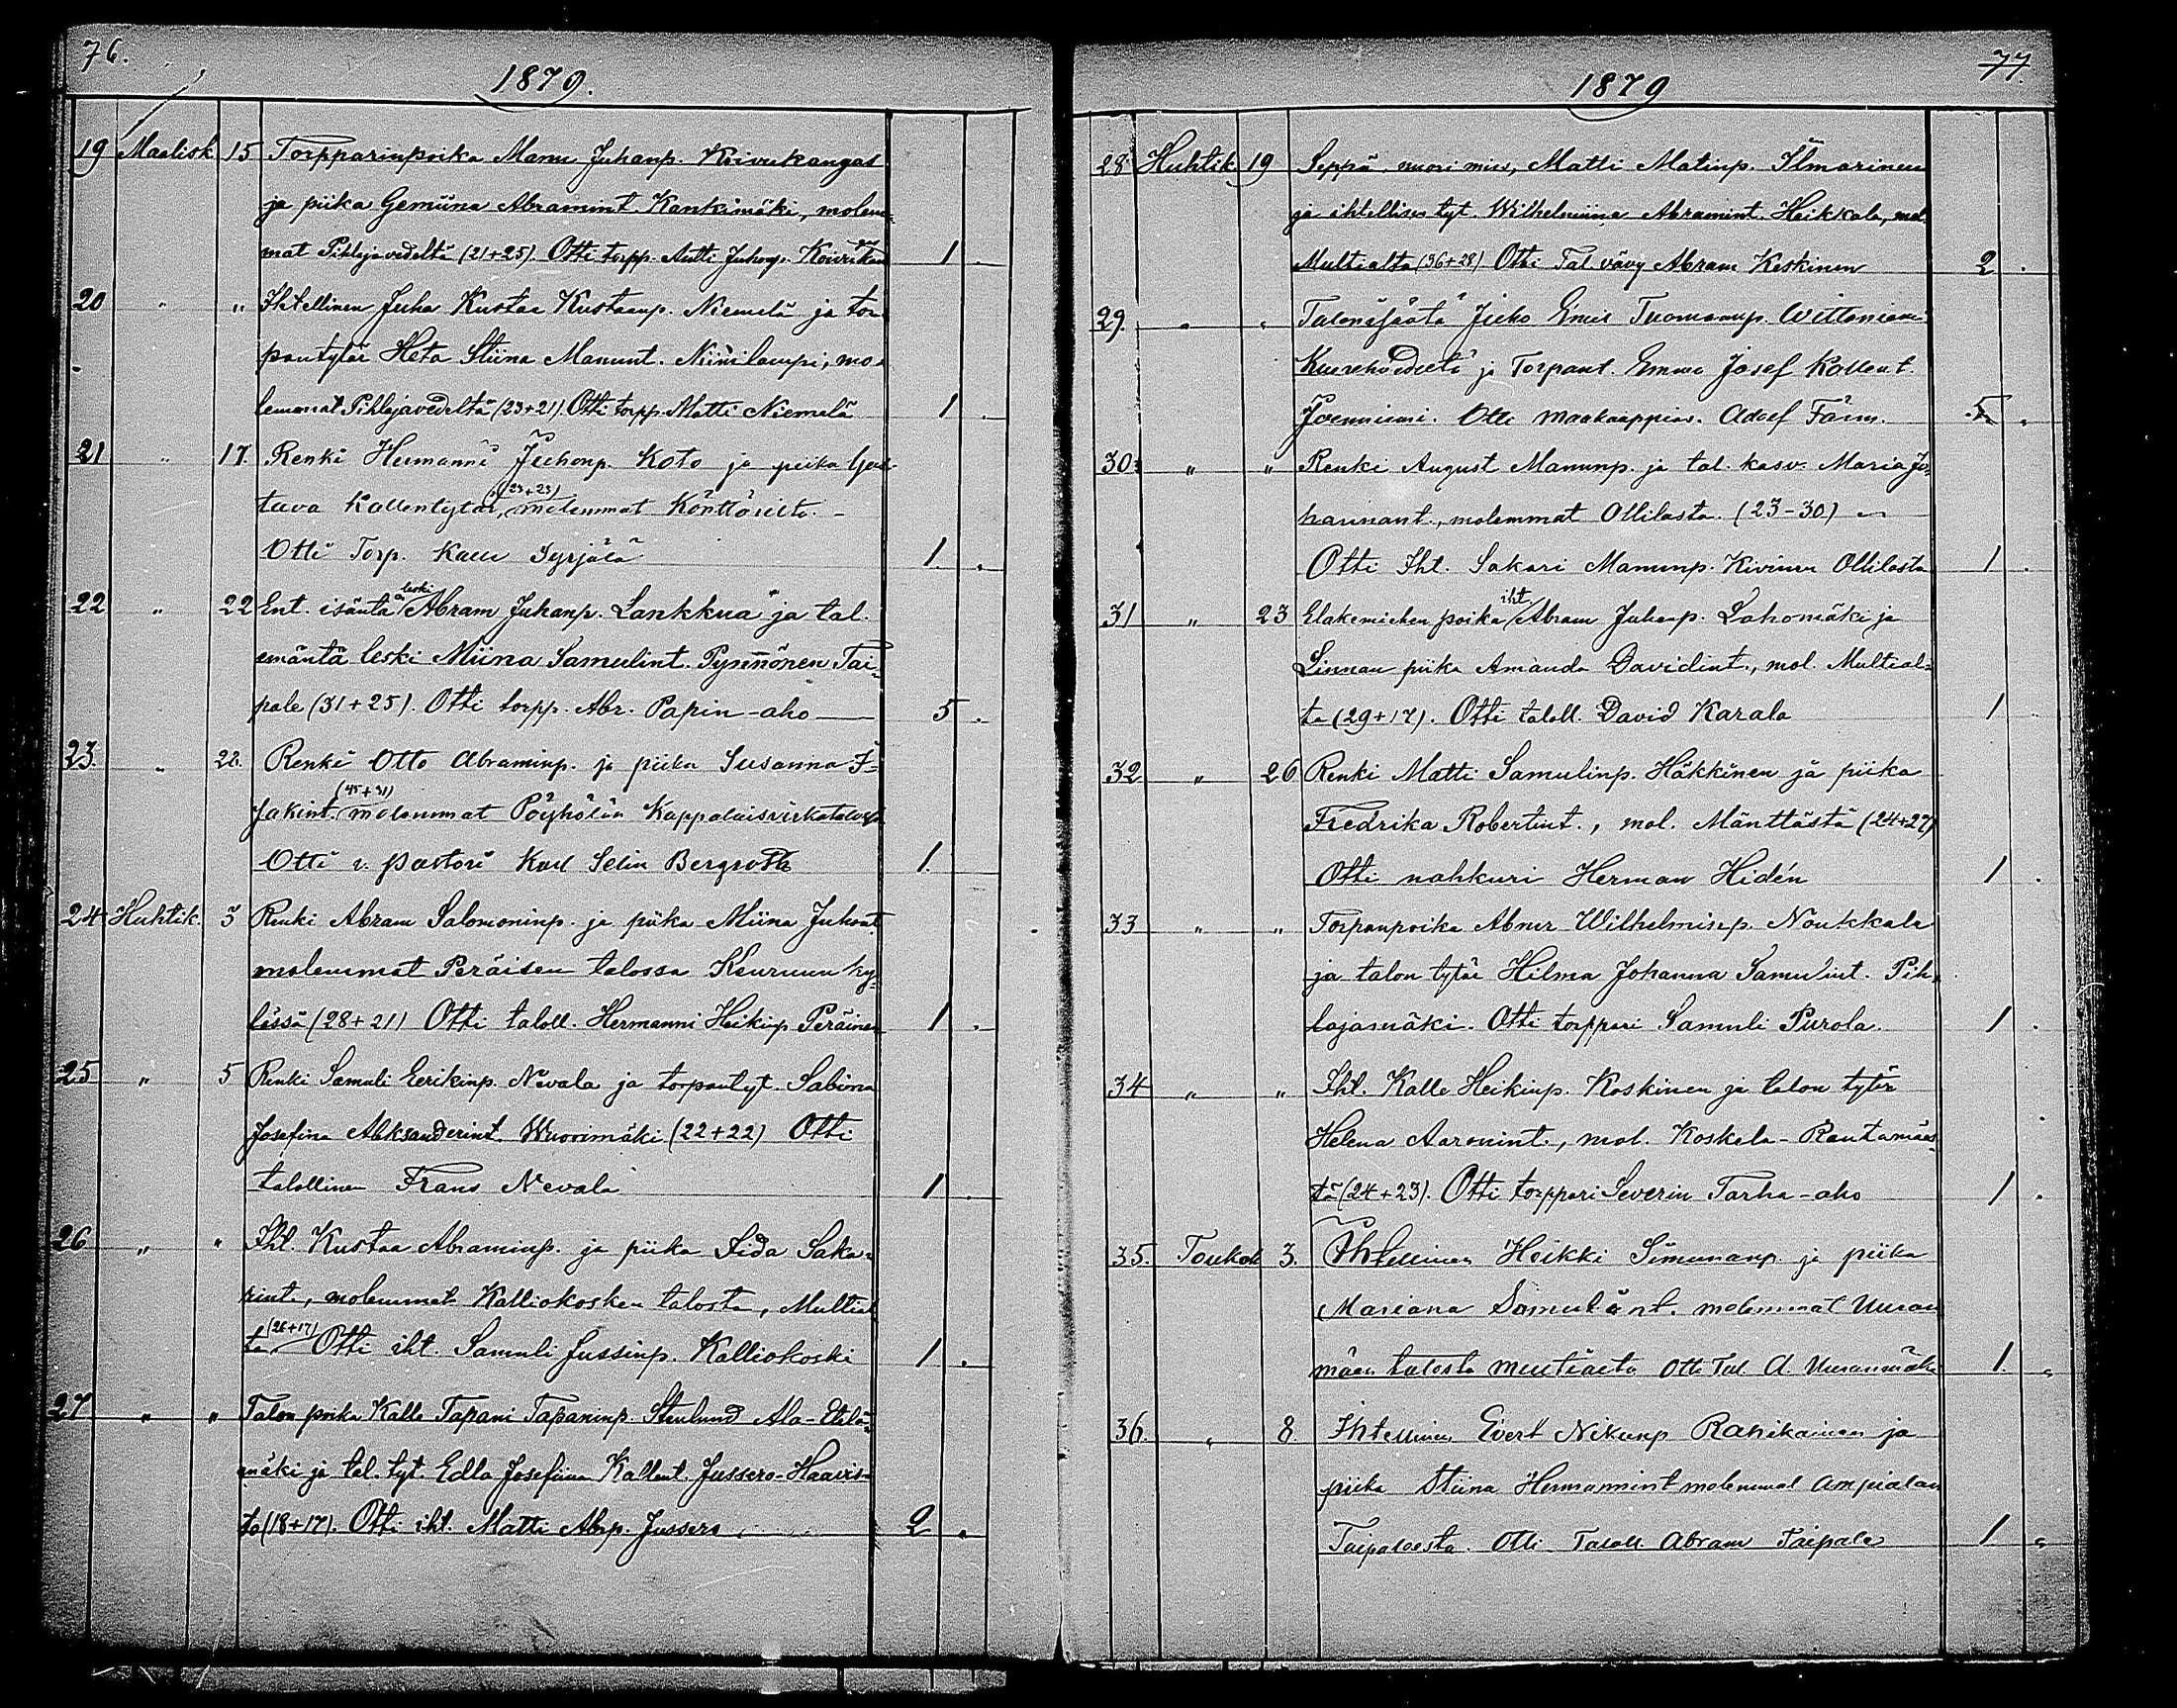 76.
1879.
19 Maalisk. 15 Torpparinpoika Manu Juhanp. Koivukangas
ja piika Gemiina Abramint. Kankimäki, molem-
mat Pihlajavedeltä (21+25). Otti torpp. Antti Juhonp. 1.
20 " " Ihtellinen Juha Kustaa Kustaanp. Niemelä ja tor-
pantytär Heta Stiina Manunt. Niinilampi, mo-
lemmat Pihlajavedeltä (23+21). Otti torpp. Matti Niemelä 1.
21 " 17. Renki Hermanni Juhonp. Koto ja piika Gus-
tava Kallentytär, (23+23) molemmat Könttörilta. -
Otti Torp. Kalle Syrjälä 1.
22 " 22 Ent. isäntä leski Abram Juhanp. Lankkua ja tal.
emäntä leski Miina Samulint. Pynnönen Tai-
pale (31+25). Otti torpp. Abr. Papin-aho 5.
23. " 22. Renki Otto Abraminp. ja piika Susanna I-
Jakint. (45+31) molemmat Pöyhölän Kappalaisvirkatalosta
Otti v. pastori Karl Selim Bergroth 1.
24 Huhtik. 3 Renki Abram Salomoninp. ja piika Miina Juhont.
molemmat Peräisen talossa Keuruun ky-
lässä (28+21) Otti taloll. Hermanni Heikinp. Peräinen 1.
25 " 5 Renki Samuli Eerikinp. Nevala ja torpantyt. Sabina
Josefina Aleksanderint. Wuorimäki (22+22) Otti
talollinen Frans Nevala 1.
26 " " Iht. Kustaa Abraminp. ja piika Iida Saka-
rint., molemmat Kalliokosken talosta, Multial-
ta (26+17) Otti iht. Samuli Jussinp. Kalliokoski 1.
27 " " Talon poika Kalle Tapani Tapaninp. Stenlund Ala-Etelä-
mäki ja tal. tyt. Edla Josefiina Kallent. Jussero-Haavis-
to (18+17). Otti iht. Matti Abrp. Jussero. 2.
1879
77.
28 Huhtik. 19 Seppä, nuori mies, Matti Matinp. Ilmarinen
ja ihtellisen tyt. Wilhelmiina Abramint. Heikkala, mol.
Multialta (36+28) Otti Tal. vävy Abram Keskinen 2.
29. " " Juho Emil Tuomaanp.
ja Torpant. Emma Josef Kallent.
Joenniemi. Otti Adolf Färm. 5.
30. " " Renki August Manunp. ja tal. kasv. Maria Jo-
hannant., molemmat Ollilasta. (23-30)
Otti Iht. Sakari Manunp. Kivinen Ollilasta 1.
31 " 23 Eläkemiehen poika iht. Abram Juhanp. Lahomäki ja
Linnan piika Amanda Davidint., mol. Multial-
ta (29+17). Otti taloll. David Karala 1.
32 " 26 Renki Matti Samulinp. Häkkinen ja piika
Fredrika Robertint., mol. Mänttästä (24+27)
Otti nahkuri Herman Hidén 1.
33 " " Torpanpoika Abner Wilhelminp. Noukkala
ja talon tytär Hilma Johanna Samulint. Pih-
lajamäki. Otti torppari Samuli Purola. 1.
34 " " Iht. Kalle Heikinp. Koskinen ja talon tytär
Helena Aaronint., mol. Koskela-Rautamäes-
tä (24+23). Otti torppari Severin Tarha-aho 1.
35. Toukok. 3. Ihtellinen Heikki Simunanp. ja piika
Mariana Samulint. molemmat Uuran
mäen talosta Multialta Otti Tal. A. Uuranmäki 1.
36. " 8. Ihtellinen Evert Nikunp. Ranikainen ja
piika Stiina Hermannint. molemmat Ampialan
Taipaleesta. Otti Taloll. Abram Taipale 1.